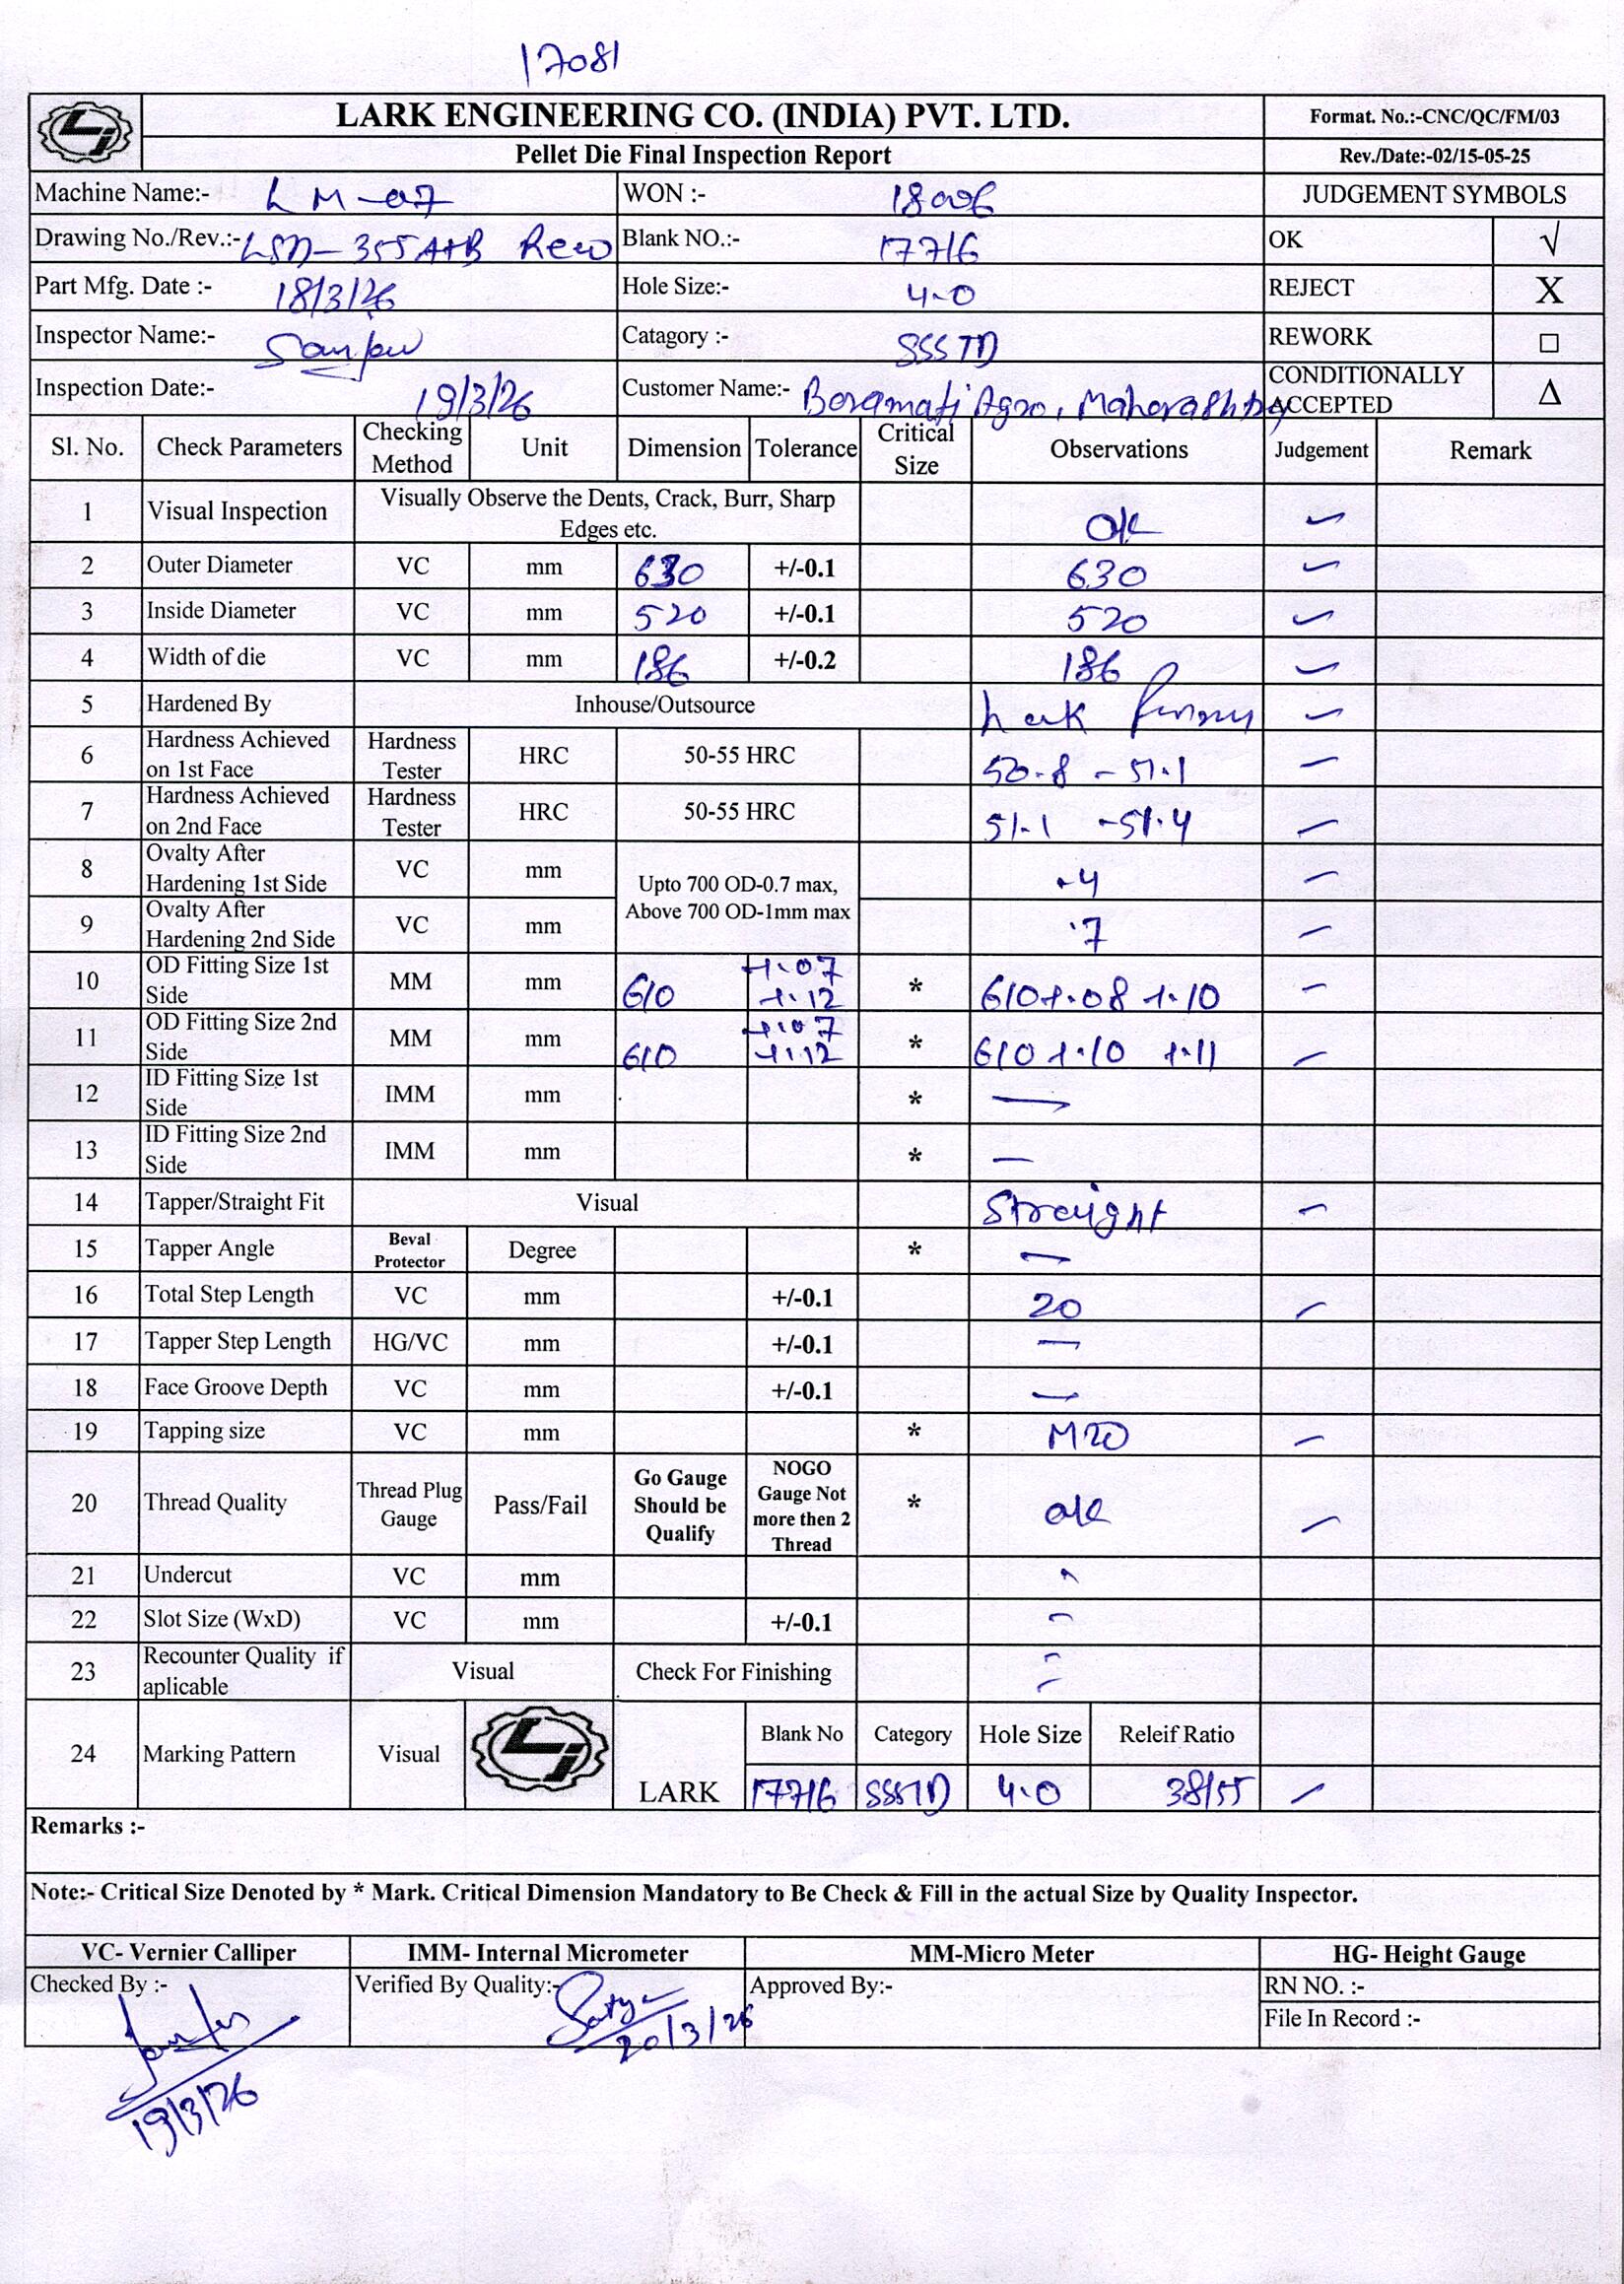 17081
LARK ENGINEERING CO. (INDIA) PVT. LTD. Format. No.:-CNC/QC/FM/03
Pellet Die Final Inspection Report Rev./Date:-02/15-05-25
Machine Name:- LM-07 WON :- 18006 JUDGEMENT SYMBOLS
Drawing No./Rev.:- LSD-355 A+B Rev0 Blank NO.:- 17716 OK √
Part Mfg. Date :- 18/3/26 Hole Size:- 4.0 REJECT X
Inspector Name:- Catagory :- SSSTD REWORK □
Inspection Date:- 19/3/26 Customer Name:- Baramati Agro, Maharashtra CONDITIONALLY ACCEPTED Δ
Sl. No. Check Parameters Checking Method Unit Dimension Tolerance Critical Size Observations Judgement Remark
1 Visual Inspection Visually Observe the Dents, Crack, Burr, Sharp Edges etc. Ok
2 Outer Diameter VC mm 630 +/-0.1 630
3 Inside Diameter VC mm 520 +/-0.1 520
4 Width of die VC mm 186 +/-0.2 186
5 Hardened By Inhouse/Outsource Lark
6 Hardness Achieved on 1st Face Hardness Tester HRC 50-55 HRC 50.8 - 51.1
7 Hardness Achieved on 2nd Face Hardness Tester HRC 50-55 HRC 51.1 - 51.4
8 Ovalty After Hardening 1st Side VC mm Upto 700 OD-0.7 max, Above 700 OD-1mm max .4
9 Ovalty After Hardening 2nd Side VC mm .7
10 OD Fitting Size 1st Side MM mm 610 +.07 +.12 * 610+.08 +.10
11 OD Fitting Size 2nd Side MM mm 610 +.07 +.12 * 610+.10 +.11
12 ID Fitting Size 1st Side IMM mm * —
13 ID Fitting Size 2nd Side IMM mm * —
14 Tapper/Straight Fit Visual Straight
15 Tapper Angle Beval Protector Degree * —
16 Total Step Length VC mm +/-0.1 20
17 Tapper Step Length HG/VC mm +/-0.1 —
18 Face Groove Depth VC mm +/-0.1 —
19 Tapping size VC mm * M20
20 Thread Quality Thread Plug Gauge Pass/Fail Go Gauge Should be Qualify NOGO Gauge Not more then 2 Thread * ok
21 Undercut VC mm
22 Slot Size (WxD) VC mm +/-0.1 -
23 Recounter Quality if aplicable Visual Check For Finishing -
24 Marking Pattern Visual LARK Blank No Category Hole Size Releif Ratio
17716 SSSTD 4.0 38/55
Remarks :-
Note:- Critical Size Denoted by * Mark. Critical Dimension Mandatory to Be Check & Fill in the actual Size by Quality Inspector.
VC- Vernier Calliper IMM- Internal Micrometer MM-Micro Meter HG- Height Gauge
Checked By :- Verified By Quality:- Satya Approved By:- RN NO. :-
20/3/26 File In Record :-
19/3/26